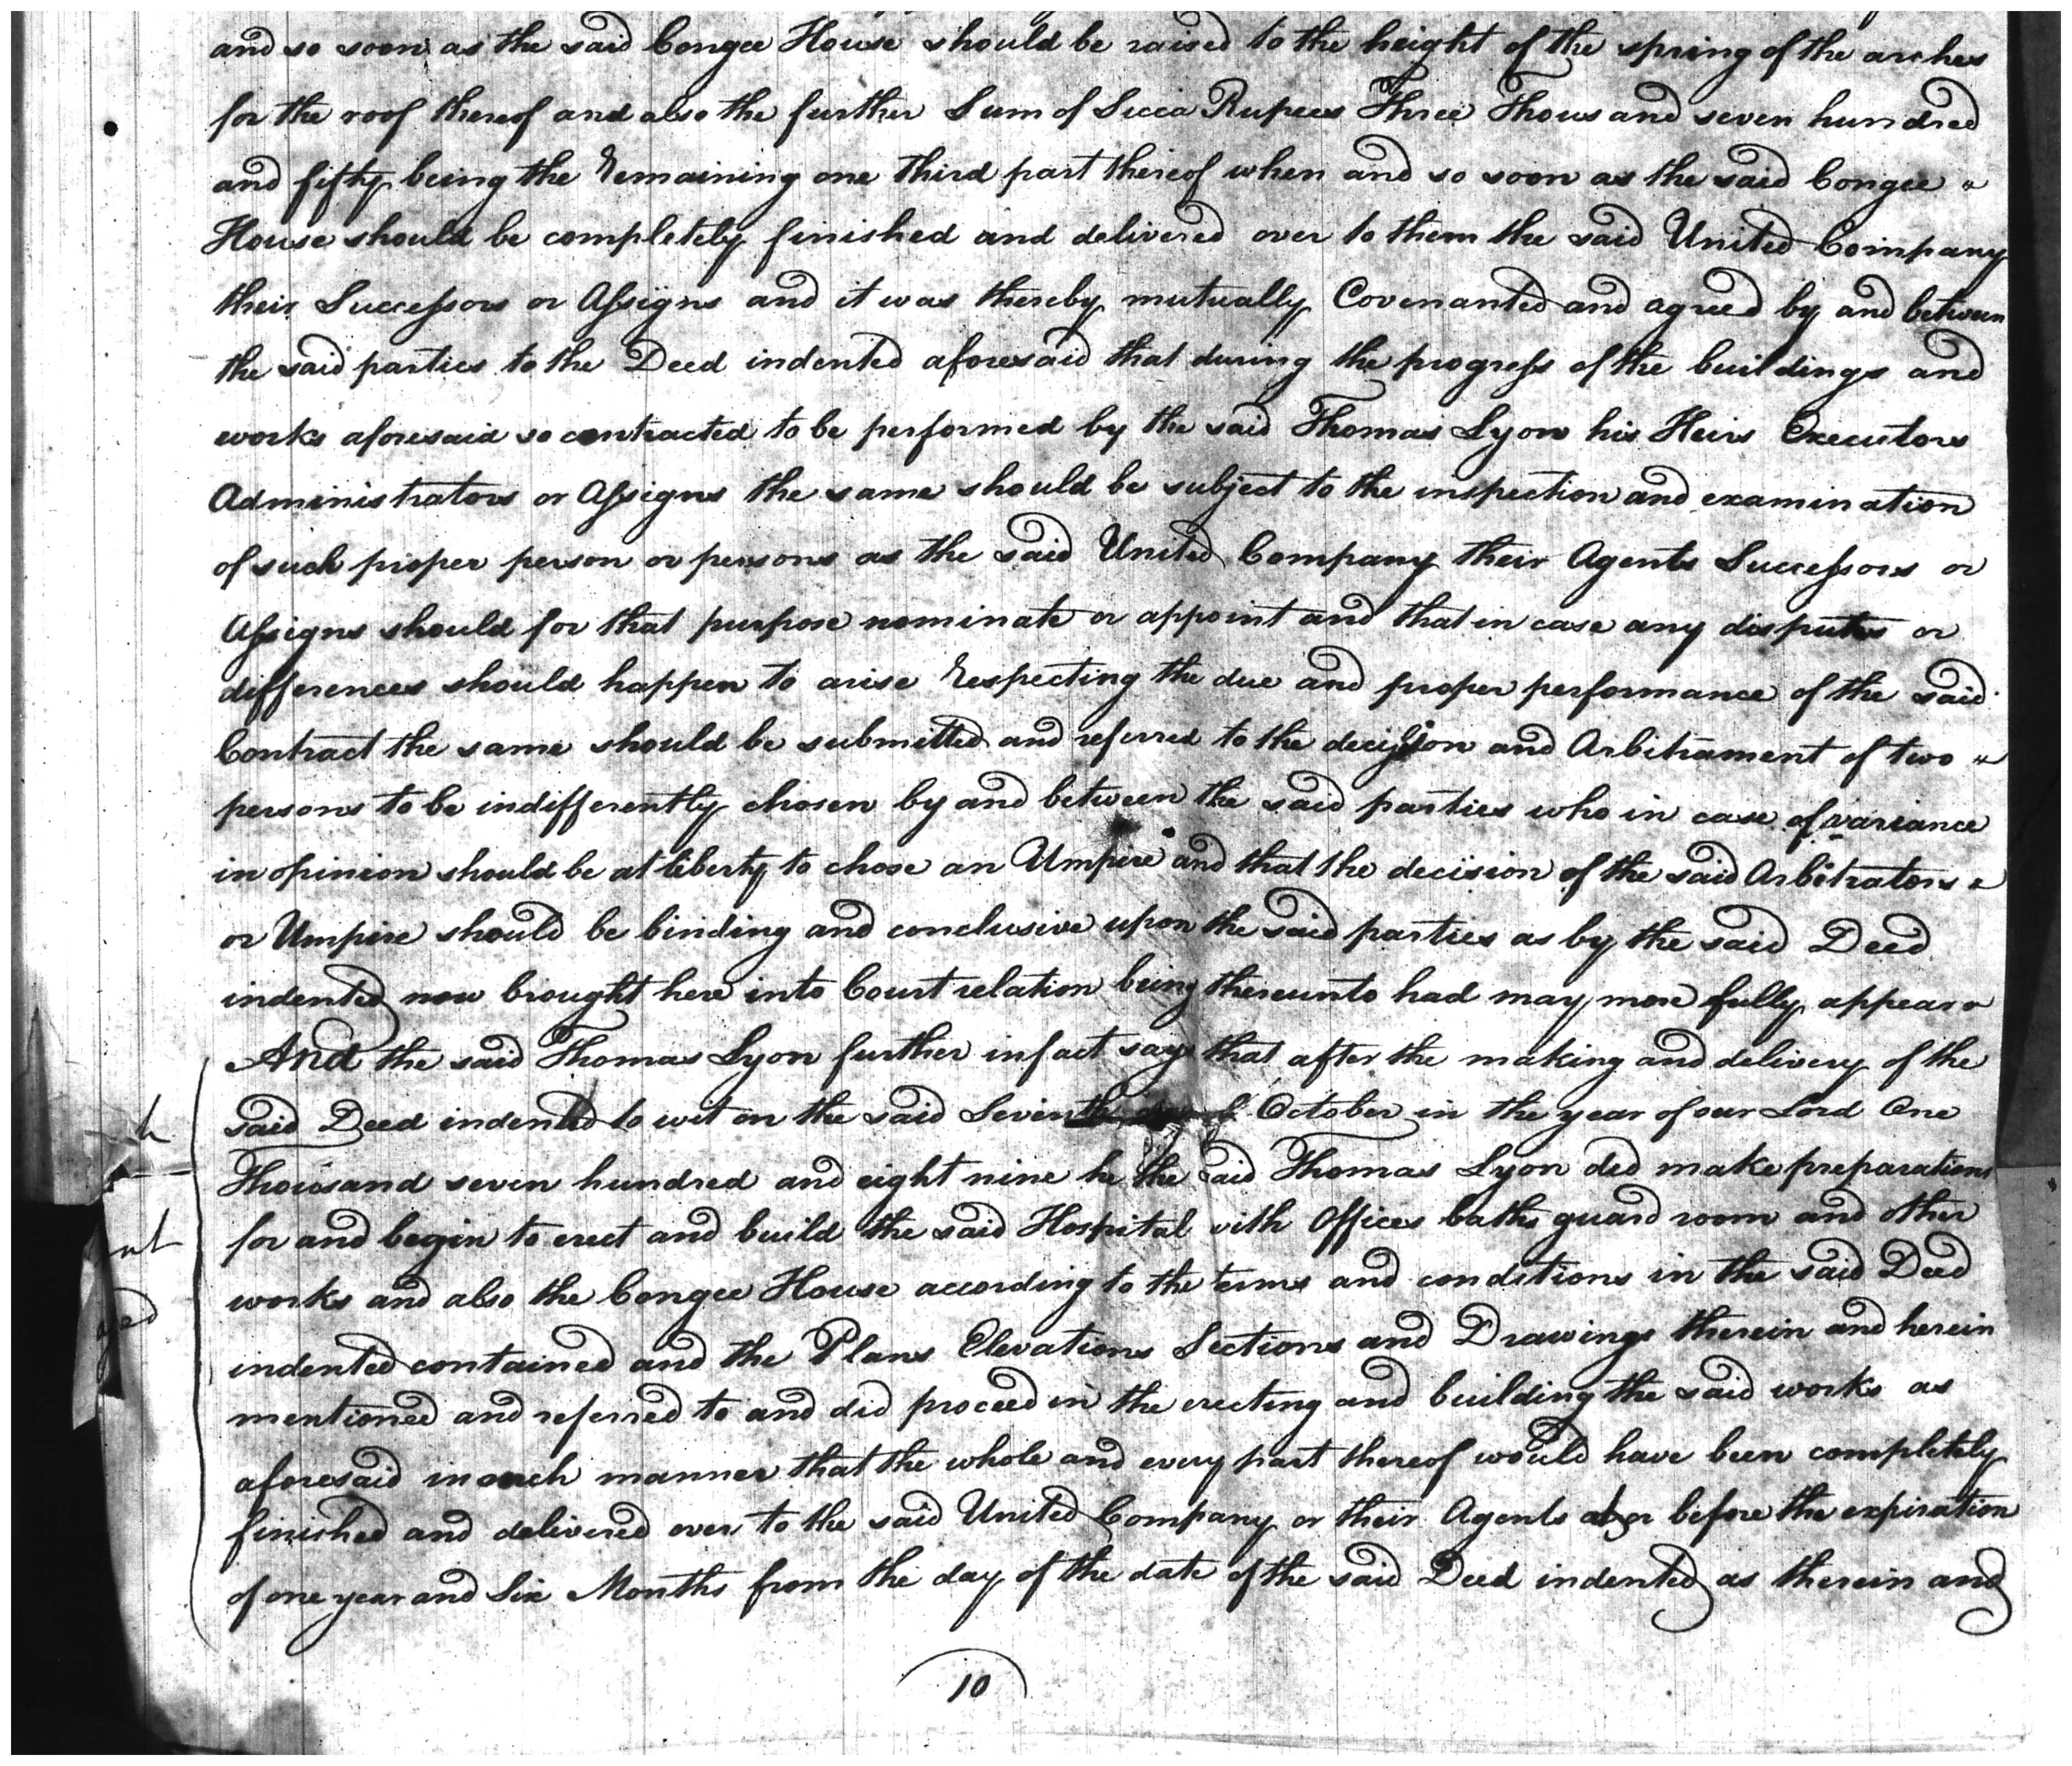 and so soon as the said Congee House should be raised to the height of the spring of the arches
for the roof thereof and also the further Sum of Sicca Rupees Three Thousand seven hundred
and fifty being the Remaining one third part thereof when and so soon as the said Congee "
House should be completely finished and delivered over to them the said United Company
their Successors or Assigns and it was thereby mutually Covenanted and agreed by and between
the said parties to the Deed indented aforesaid that during the progress of the buildings and
works aforesaid so contracted to be performed by the said Thomas Lyon his Heirs Executors
Administrators or Assigns the same should be subject to the inspection and examination
of such proper person or persons as the said United Company their Agents Successors or
Assigns should for that purpose nominate or appoint and that in case any disputes or
differences should happen to arise Respecting the due and proper performance of the said
Contract the same should be submitted and referred to the decission and Arbitrament of two "
persons to be indifferently chosen by and between the said parties who in case of variance
in opinion should be at liberty to chose an Umpire and that the decision of the said Arbitrators
or Umpire should be binding and conclusive upon the said parties as by the said Deed
indented now brought here into Court relation being thereunto had may more fully appear
And the said Thomas Lyon further in fact says that after the making and delivery of the
said Deed indented to wit on the said Seventh day of October in the year of our Lord One
Thousand seven hundred and eight nine he the said Thomas Lyon did make preparations
for and begin to erect and build the said Hospital with Offices baths guard room and other
works and also the Congee House according to the terms and conditions in the said Deed
indented contained and the Plans Elevations Sections and Drawings therein and herein
mentioned and referred to and did proceed in the erecting and building the said works as
aforesaid in such manner that the whole and every part thereof would have been completely
finished and delivered over to the said United Company or their Agents at or before the expiration
of one year and Six Months from the day of the date of the said Deed indented as therein and
10